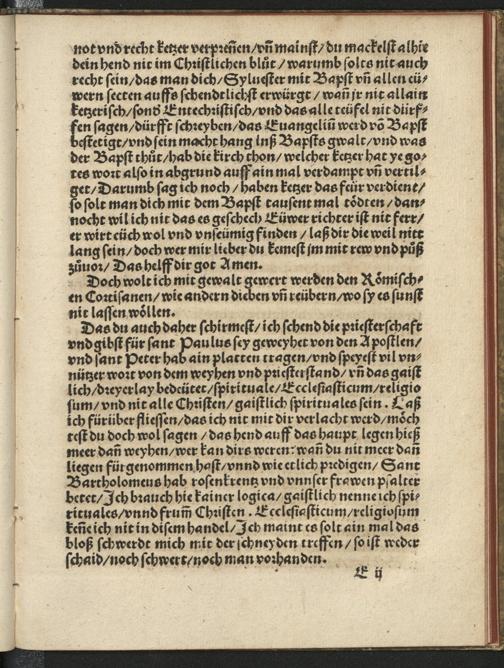 not vnd recht ketzer verpreñen/vñ mainst/du mackelst alhie
dein hend nit im Christlichen blůt/warumb solts nit auch
recht sein/das man dich/Syluester mit Bapst vñ allen eü-
wern secten auffs schendtlichst erwürgt/wañ jr nit allain
ketzerisch/sonð Entechristisch/vnd das alle teüfel nit dürf-
fen sagen/dürfft schreyben/das Euangeliũ werd võ Bapst
bestetigt/vnd sein macht hang inß Bapsts gwalt/vnd was
der Bapst thůt/hab die kirch thon/welcher ketzer hat ye go-
tes wort also in abgrund auff ain mal verdampt vñ vertil-
get/Darumb sag ich noch/haben ketzer das feür verdient/
so solt man dich mit dem Bapst tausent mal tödten/dan-
nocht wil ich nit das es geschech/Eüwer richter ist nit ferr/
er wirt eüch wol vnd vnseümig finden/laß dir die weil nitt
lang sein/doch wer mir lieber du kemest jm mit rew vnd půß
zůuor/Das helff dir got Amen.
Doch wolt ich mit gewalt gewert werden den Römisch-
en Cortisanen/wie andern dieben vñ reübern/wo sy es sunst
nit lassen wöllen.
Das du auch daher schirmest/ich schend die priesterschaft
vnd gibst für sant Paulus sey geweyhet von den Apostlen/
vnd sant Peter hab ain platten tragen/vnd speyest vil vn-
nützer wort von dem weyhen vnd priesterstand/vñ das gaist
lich/dreyerlay bedeütet/spirituale/Ecclesiasticum/religio
sum/vnd nit alle Christen/gaistlich spirituales sein. Laß
ich fürüber fliessen/das ich nit mit dir verlacht werd/möch
test du doch wol sagen/das hend auff das haupt legen hieß
meer dañ weyhen/wer kan dirs weren: wañ du nit meer dañ
liegen für genommen hast/vnnd wie etlich predigen/Sant
Bartholomeus hab rosenkrentz vnd vnnser frawen psalter
betet/Ich brauch hie kainer logica/gaistlich nenne ich spi-
rituales/vnnd frum̃ Christen. Ecclesiasticum/religiosum
keñe ich nit in disem handel/Ich maint es solt ain mal das
bloß schwerdt mich mit der schneyden treffen/so ist weder
schaid/noch schwert/noch man vorhanden.
E ij